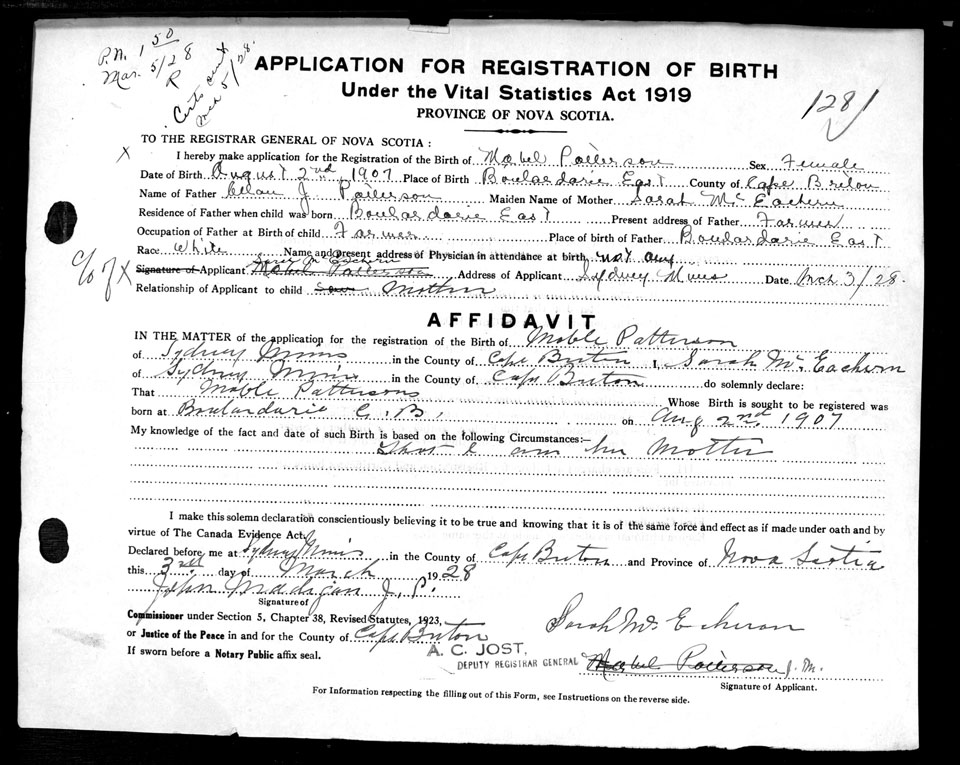 P.N. 1 50
Mar. 5/28
R
Certs sent
Mch 5/28.
1281
APPLICATION FOR REGISTRATION OF BIRTH
Under the Vital Statistics Act 1919
PROVINCE OF NOVA SCOTIA.
TO THE REGISTRAR GENERAL OF NOVA SCOTIA :
X I hereby make application for the Registration of the Birth of Mabel Patterson Sex Female
Date of Birth August 2nd 1907 Place of Birth Boulardarie East County of Cape Briton
Name of Father J Patterson Maiden Name of Mother Sarah McEachern
Residence of Father when child was born Boulardarie East Present address of Father Farmer
Occupation of Father at Birth of child Farmer Place of birth of Father Boulardarie East
Race White Name and present address of Physician in attendance at birth, not any
c/o of X Signature of Applicant Mabel Patterson Address of Applicant Sydney Mines Date Mch 3/28.
Relationship of Applicant to child Mother
AFFIDAVIT
IN THE MATTER of the application for the registration of the Birth of Mable Patterson
of Sydney Mines in the County of Cape Breton I, Sarah McEachern
of Sydney Mines in the County of Cape Breton do solemnly declare:
That Mable Pattersons Whose Birth is sought to be registered was
born at Boulardarie C.B. on Aug 2nd 1907
My knowledge of the fact and date of such Birth is based on the following Circumstances:—
That I am her Mother
I make this solemn declaration conscientiously believing it to be true and knowing that it is of the same force and effect as if made under oath and by
virtue of The Canada Evidence Act.
Declared before me at Sydney Mines in the County of Cape Breton and Province of Nova Scotia
this 3rd day of March 1928
John Madigan J.P.
Signature of
Commissioner under Section 5, Chapter 38, Revised Statutes, 1923, Sarah Mc Echeran
or Justice of the Peace in and for the County of Cape Breton
A. C. JOST,
If sworn before a Notary Public affix seal. DEPUTY REGISTRAR GENERAL Mabel Patterson J.M.
Signature of Applicant.
For Information respecting the filling out of this Form, see Instructions on the reverse side.